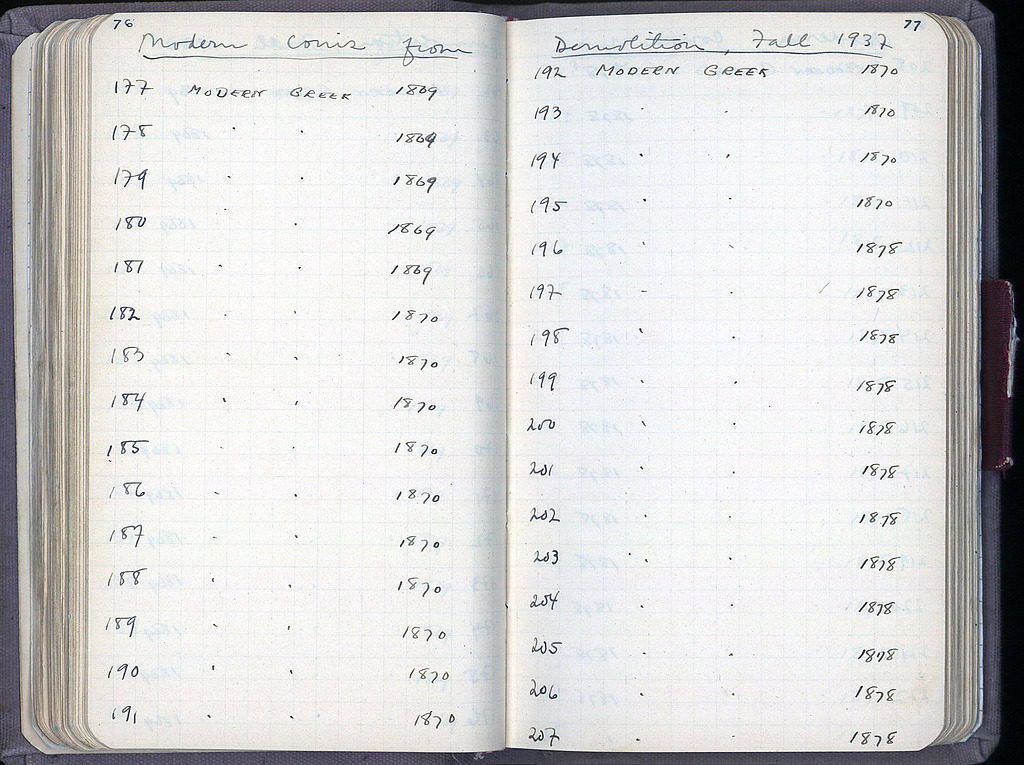 76
Modern Coins from
177 MODERN GREEK 1869
178 " " 1869
179 " " 1869
180 " " 1869
181 " " 1869
182 " " 1870
183 " " 1870
184 " " 1870
185 " " 1870
186 " " 1870
187 " " 1870
188 " " 1870
189 " " 1870
190 " " 1870
191 " " 1870
77
Demolition, Fall 1937
192 MODERN GREEK 1870
193 1870
194 " " 1870
195 " " 1870
196 " " 1878
197 " " 1878
198 " " 1878
199 " " 1878
200 " " 1878
201 " " 1878
202 " " 1878
203 " " 1878
204 " " 1878
205 " " 1878
206 " " 1878
207 " " 1878